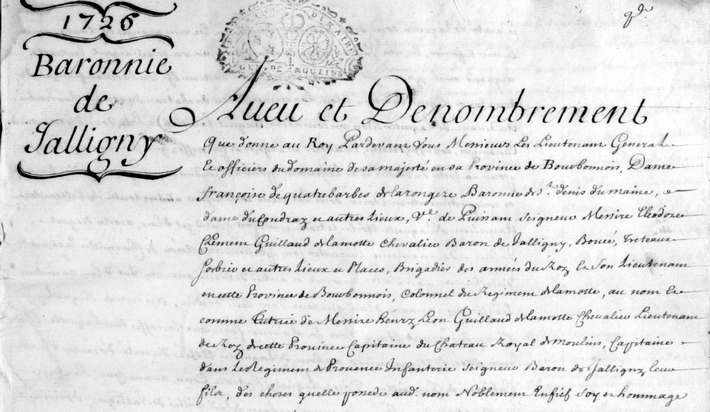 1726
Baronnie
de
Jalligny
Aueu et Denombrement
Que donne au Roy Pardevant Vous Messieurs Les Lieutenant General
Et officiers du domaine de sa majesté en sa Province de Bourbonnois, Dame
françoise de quatrebarbes de la rongere Baronne de St. denis du maine, et
dame du Coudray et autres Lieux, Ve. de Puissant Seigneur Messire Theodore
Clement Guillaud de la motte Chevalier Baron de Jalligny, Boucé, Treteaux
sorbier et autres Lieux et Places, Brigadier des armées du Roy et Son Lieutenant
en cette Province de Bourbonnois, Colonnel du Regiment de la motte, au nom Et
comme Tutrice de Messire Henry Leon Guillaud de la motte Chevalier Lieutenant
de Roy de cette Province Capitaine du Chateau Royal de moulins, Capitaine
dans Le Regiment de Provence Infanterie Seigneur Baron de Jalligny leur
fils, des choses quelle possede aud. nom Noblement En fief foy et hommage